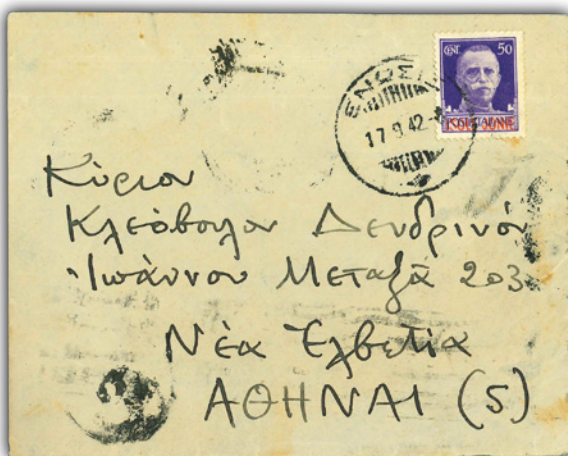 CENT. 50
POSTE ITALIANE
17.9.42
Κύριον
Κλεόβουλον Δενδρινόν
Ἰωάννου Μεταξᾶ 203
Νέα Ἑλβετία
ΑΘΗΝΑΙ (5)